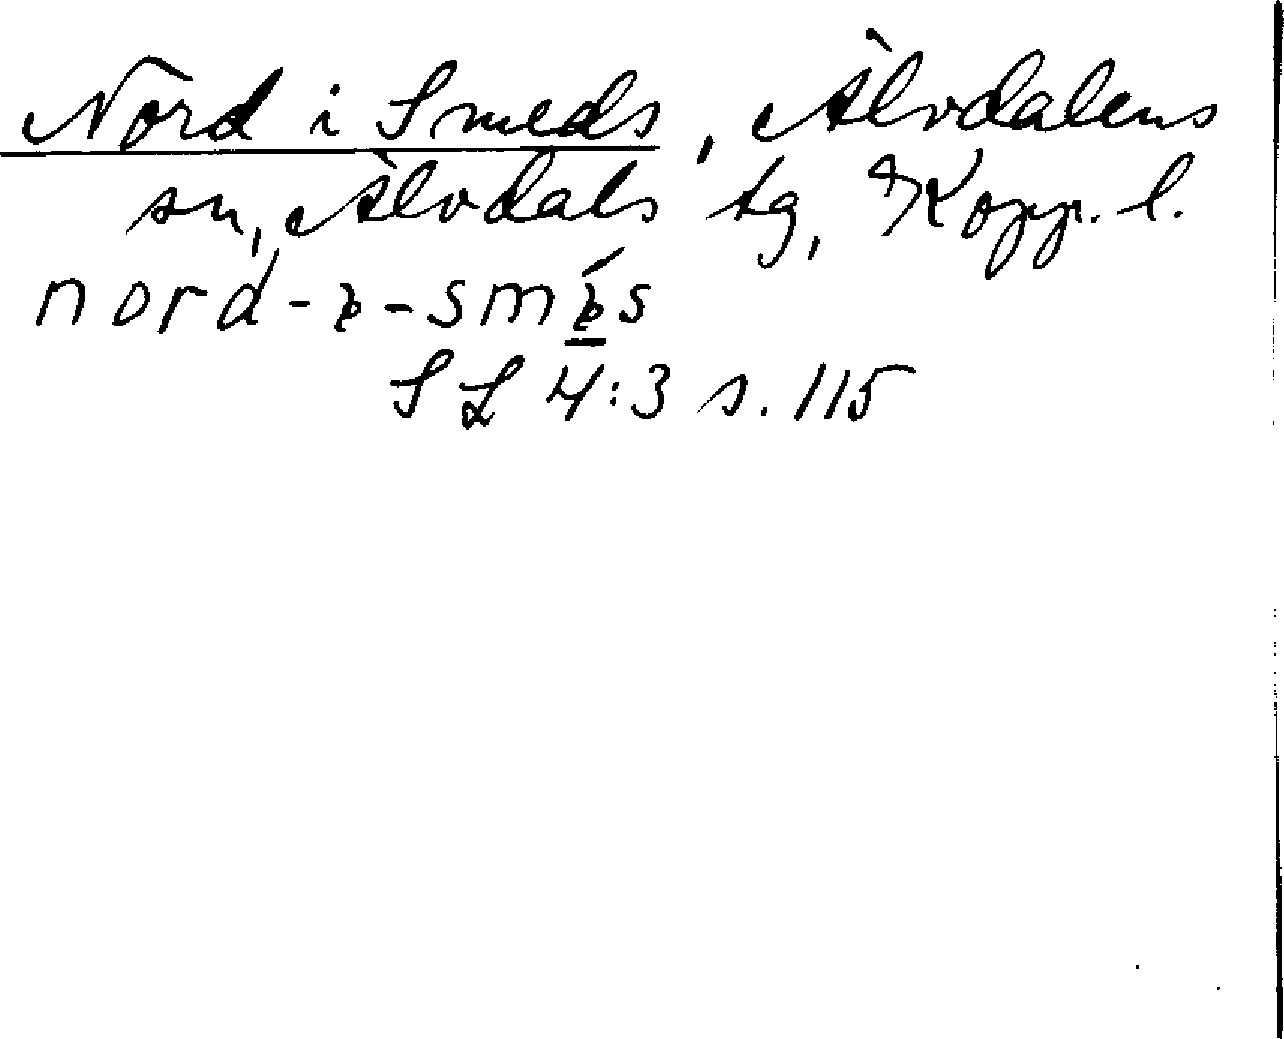 Nord i Smeds, Älvdalens
sn, Älvdals tg, Kopp. l.
nord-ɩ-smɩ̱́s
SL 4:3 s. 115